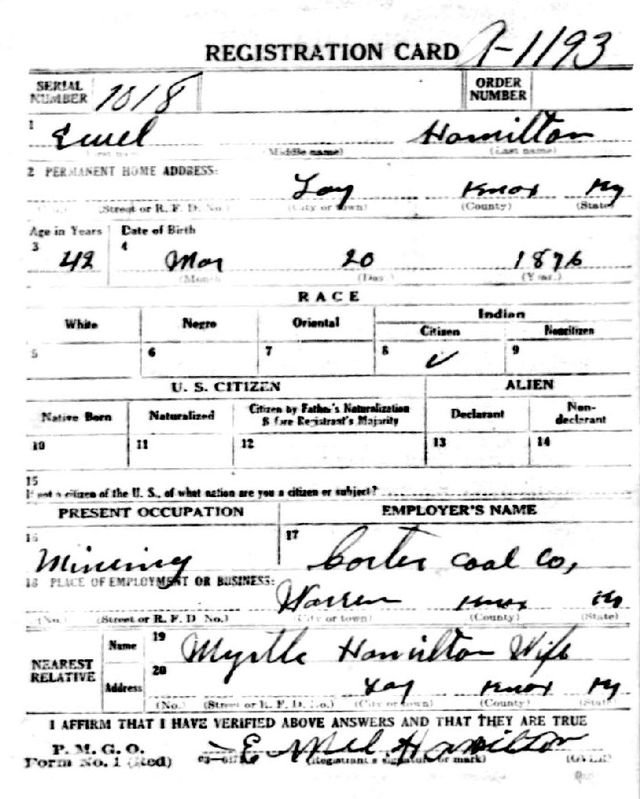 REGISTRATION CARD A-1193
SERIAL NUMBER 1018 ORDER NUMBER
1 Emel Hamilton
(First name) (Middle name) (Last name)
2 PERMANENT HOME ADDRESS:
Lay Knox Ky
(No.) (Street or R. F. D. No.) (City or town) (County) (State)
Age in Years Date of Birth
3 42 4 Mar 20 1876
(Month) (Day) (Year)
RACE
White Negro Oriental Indian
Citizen Noncitizen
5 6 7 8 ✓ 9
U. S. CITIZEN ALIEN
Native Born Naturalized Citizen by Father's Naturalization Before Registrant's Majority Declarant Non-declarant
10 11 12 13 14
15
If not a citizen of the U. S., of what nation are you a citizen or subject?
PRESENT OCCUPATION EMPLOYER'S NAME
16 Mineing 17 Corter Coal Co,
18 PLACE OF EMPLOYMENT OR BUSINESS:
Warren Knox Ky
(No.) (Street or R. F. D. No.) (City or town) (County) (State)
NEAREST RELATIVE Name 19 Myrtle Hamilton Wife
Address 20 Lay Knox Ky
(No.) (Street or R. F. D. No.) (City or town) (County) (State)
I AFFIRM THAT I HAVE VERIFIED ABOVE ANSWERS AND THAT THEY ARE TRUE
P. M. G. O.
Form No. 1 (Red) Emel Hamilton
(Registrant's signature or mark) (OVER)